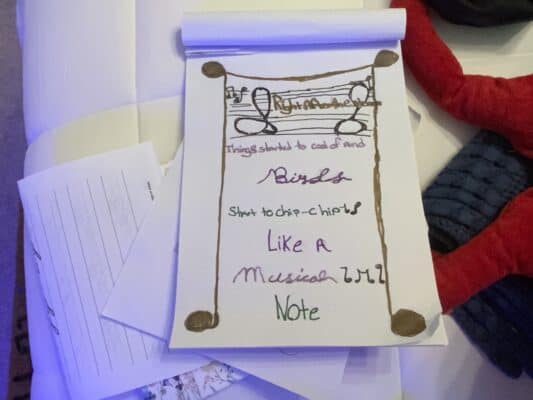 Right After the
Things started to cool of and
Birds
Start to chip-chip
Like A
Musical
Note